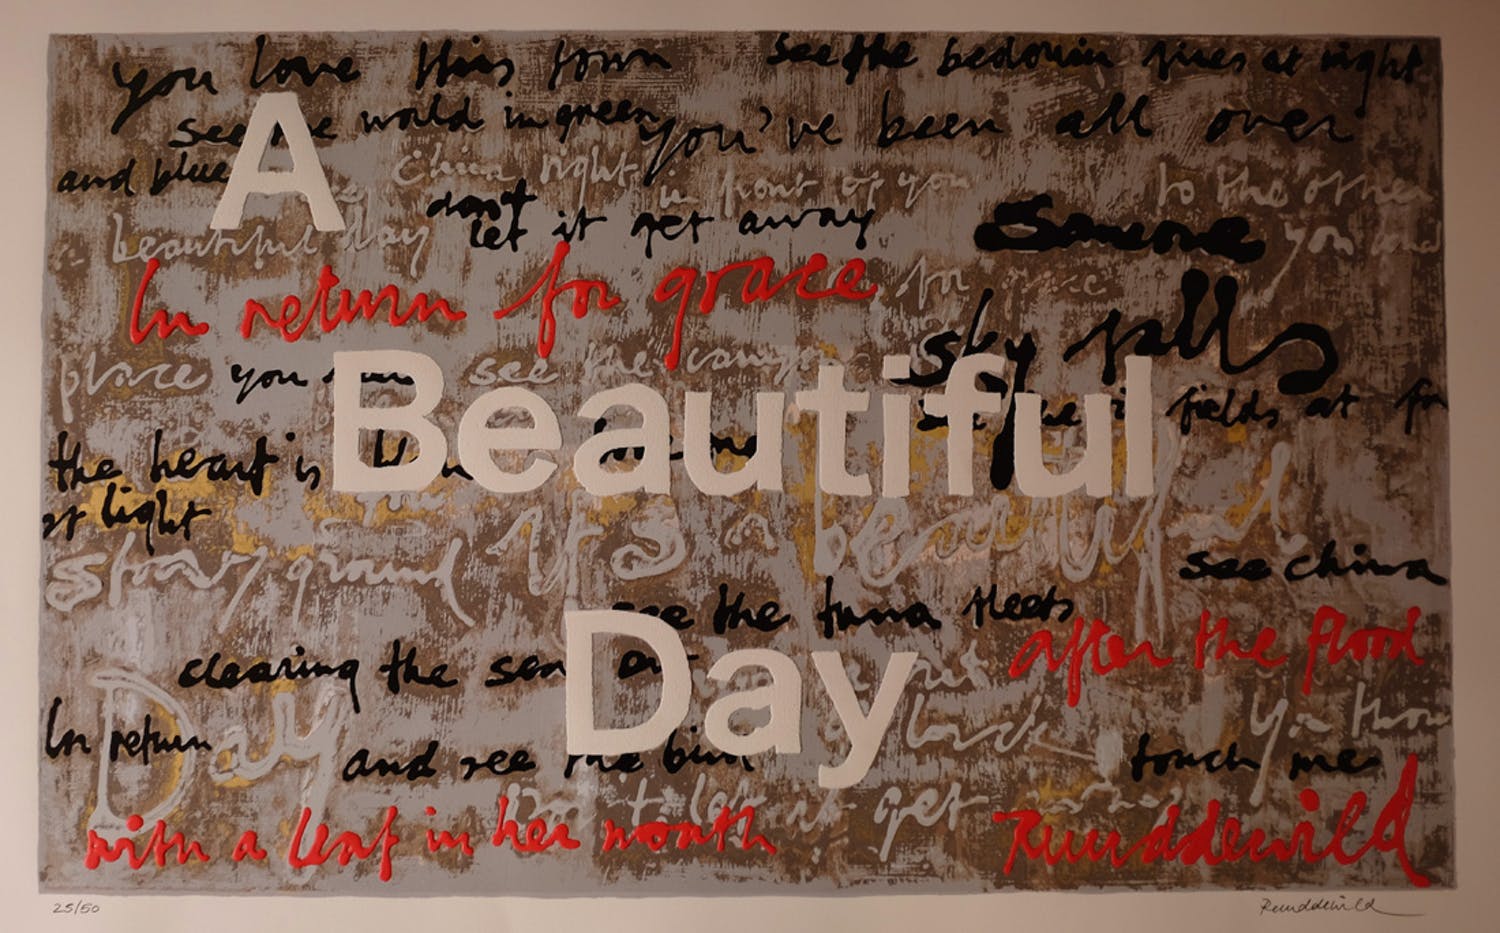 you love this town see the bedouin fires at night
A
see the world in green you've been all over
and blue China right in front of you to the other
don't
beautiful day let it get away Someone you and
In return for grace for grace
sky falls
place you see the canyon
Beautiful
fields at
the heart is
at light
stony ground It's a beautiful
see china
see the tuna fleets
Day
after the flood
clearing the sea out
Day back You thou
In return
and see the bird touch me
Don't let it get
with a leaf in her mouth Ruuddewild
25/50 Ruuddewild